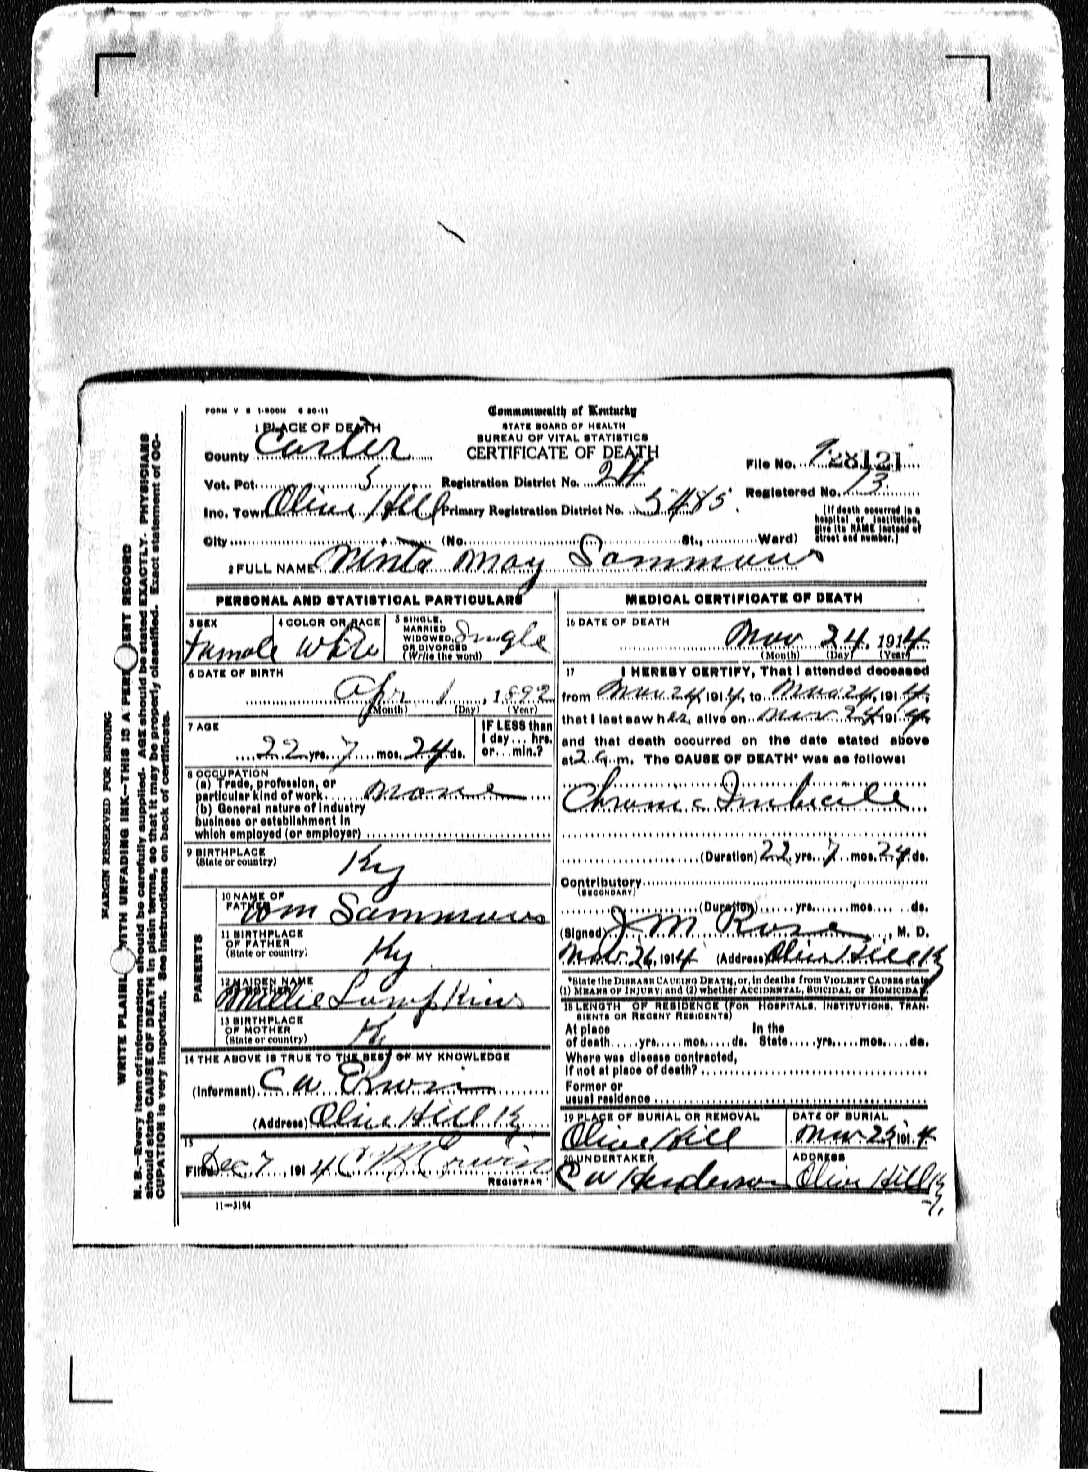 FORM V S 1-500M 6 20-11
Commonwealth of Kentucky
STATE BOARD OF HEALTH
BUREAU OF VITAL STATISTICS
CERTIFICATE OF DEATH
1 PLACE OF DEATH
County Carter
File No. 28121
Vot. Pct. 5 Registration District No. 24
Registered No. 13
Inc. Town Olive Hill Primary Registration District No. 5485
City (No. St., Ward)
[If death occurred in a
hospital or institution,
give its NAME instead of
street and number.]
2 FULL NAME May Sammons
PERSONAL AND STATISTICAL PARTICULARS
3 SEX
Female
4 COLOR OR RACE
White
5 SINGLE,
MARRIED
WIDOWED,
OR DIVORCED
(Write the word)
Single
6 DATE OF BIRTH
Apr 1, 1892
(Month) (Day) (Year)
7 AGE
22 yrs. 7 mos. 24 ds.
IF LESS than
1 day... hrs.
or... min.?
8 OCCUPATION
(a) Trade, profession, or
particular kind of work None
(b) General nature of industry
business or establishment in
which employed (or employer)
9 BIRTHPLACE
(State or country)
Ky
PARENTS
10 NAME OF
FATHER
Wm Sammons
11 BIRTHPLACE
OF FATHER
(State or country)
Ky
12 MAIDEN NAME
OF MOTHER
Mollie Lumpkins
13 BIRTHPLACE
OF MOTHER
(State or country)
Ky
14 THE ABOVE IS TRUE TO THE BEST OF MY KNOWLEDGE
(Informant) C W Erwin
(Address) Olive Hill Ky
15
Filed Dec 7, 1914 Erwin
REGISTRAR
11-3184
MEDICAL CERTIFICATE OF DEATH
16 DATE OF DEATH
Nov 24, 1914
(Month) (Day) (Year)
17 I HEREBY CERTIFY, That I attended deceased
from Nov 24, 1914, to Nov 24, 1914,
that I last saw her alive on Nov 24, 1914,
and that death occurred on the date stated above
at 2 a.m. The CAUSE OF DEATH* was as follows:
Chronic Imbecile
(Duration) 22 yrs. 7 mos. 24 ds.
Contributory
(SECONDARY)
(Duration) yrs. mos. ds.
(Signed) J M Rose, M. D.
Nov 26, 1914 (Address) Olive Hill Ky
*State the DISEASE CAUSING DEATH, or, in deaths from VIOLENT CAUSES state
(1) MEANS OF INJURY; and (2) whether ACCIDENTAL, SUICIDAL, or HOMICIDAL
18 LENGTH OF RESIDENCE (FOR HOSPITALS, INSTITUTIONS, TRAN-
SIENTS OR RECENT RESIDENTS)
At place In the
of death yrs. mos. ds. State yrs. mos. ds.
Where was disease contracted,
if not at place of death?
Former or
usual residence
19 PLACE OF BURIAL OR REMOVAL
Olive Hill
DATE OF BURIAL
Nov 25, 1914
20 UNDERTAKER
C W Henderson
ADDRESS
Olive Hill Ky
MARGIN RESERVED FOR BINDING
WRITE PLAINLY WITH UNFADING INK—THIS IS A PERMANENT RECORD
N. B.—Every item of information should be carefully supplied. AGE should be stated EXACTLY. PHYSICIANS
should state CAUSE OF DEATH in plain terms, so that it may be properly classified. Exact statement of OC-
CUPATION is very important. See instructions on back of certificate.